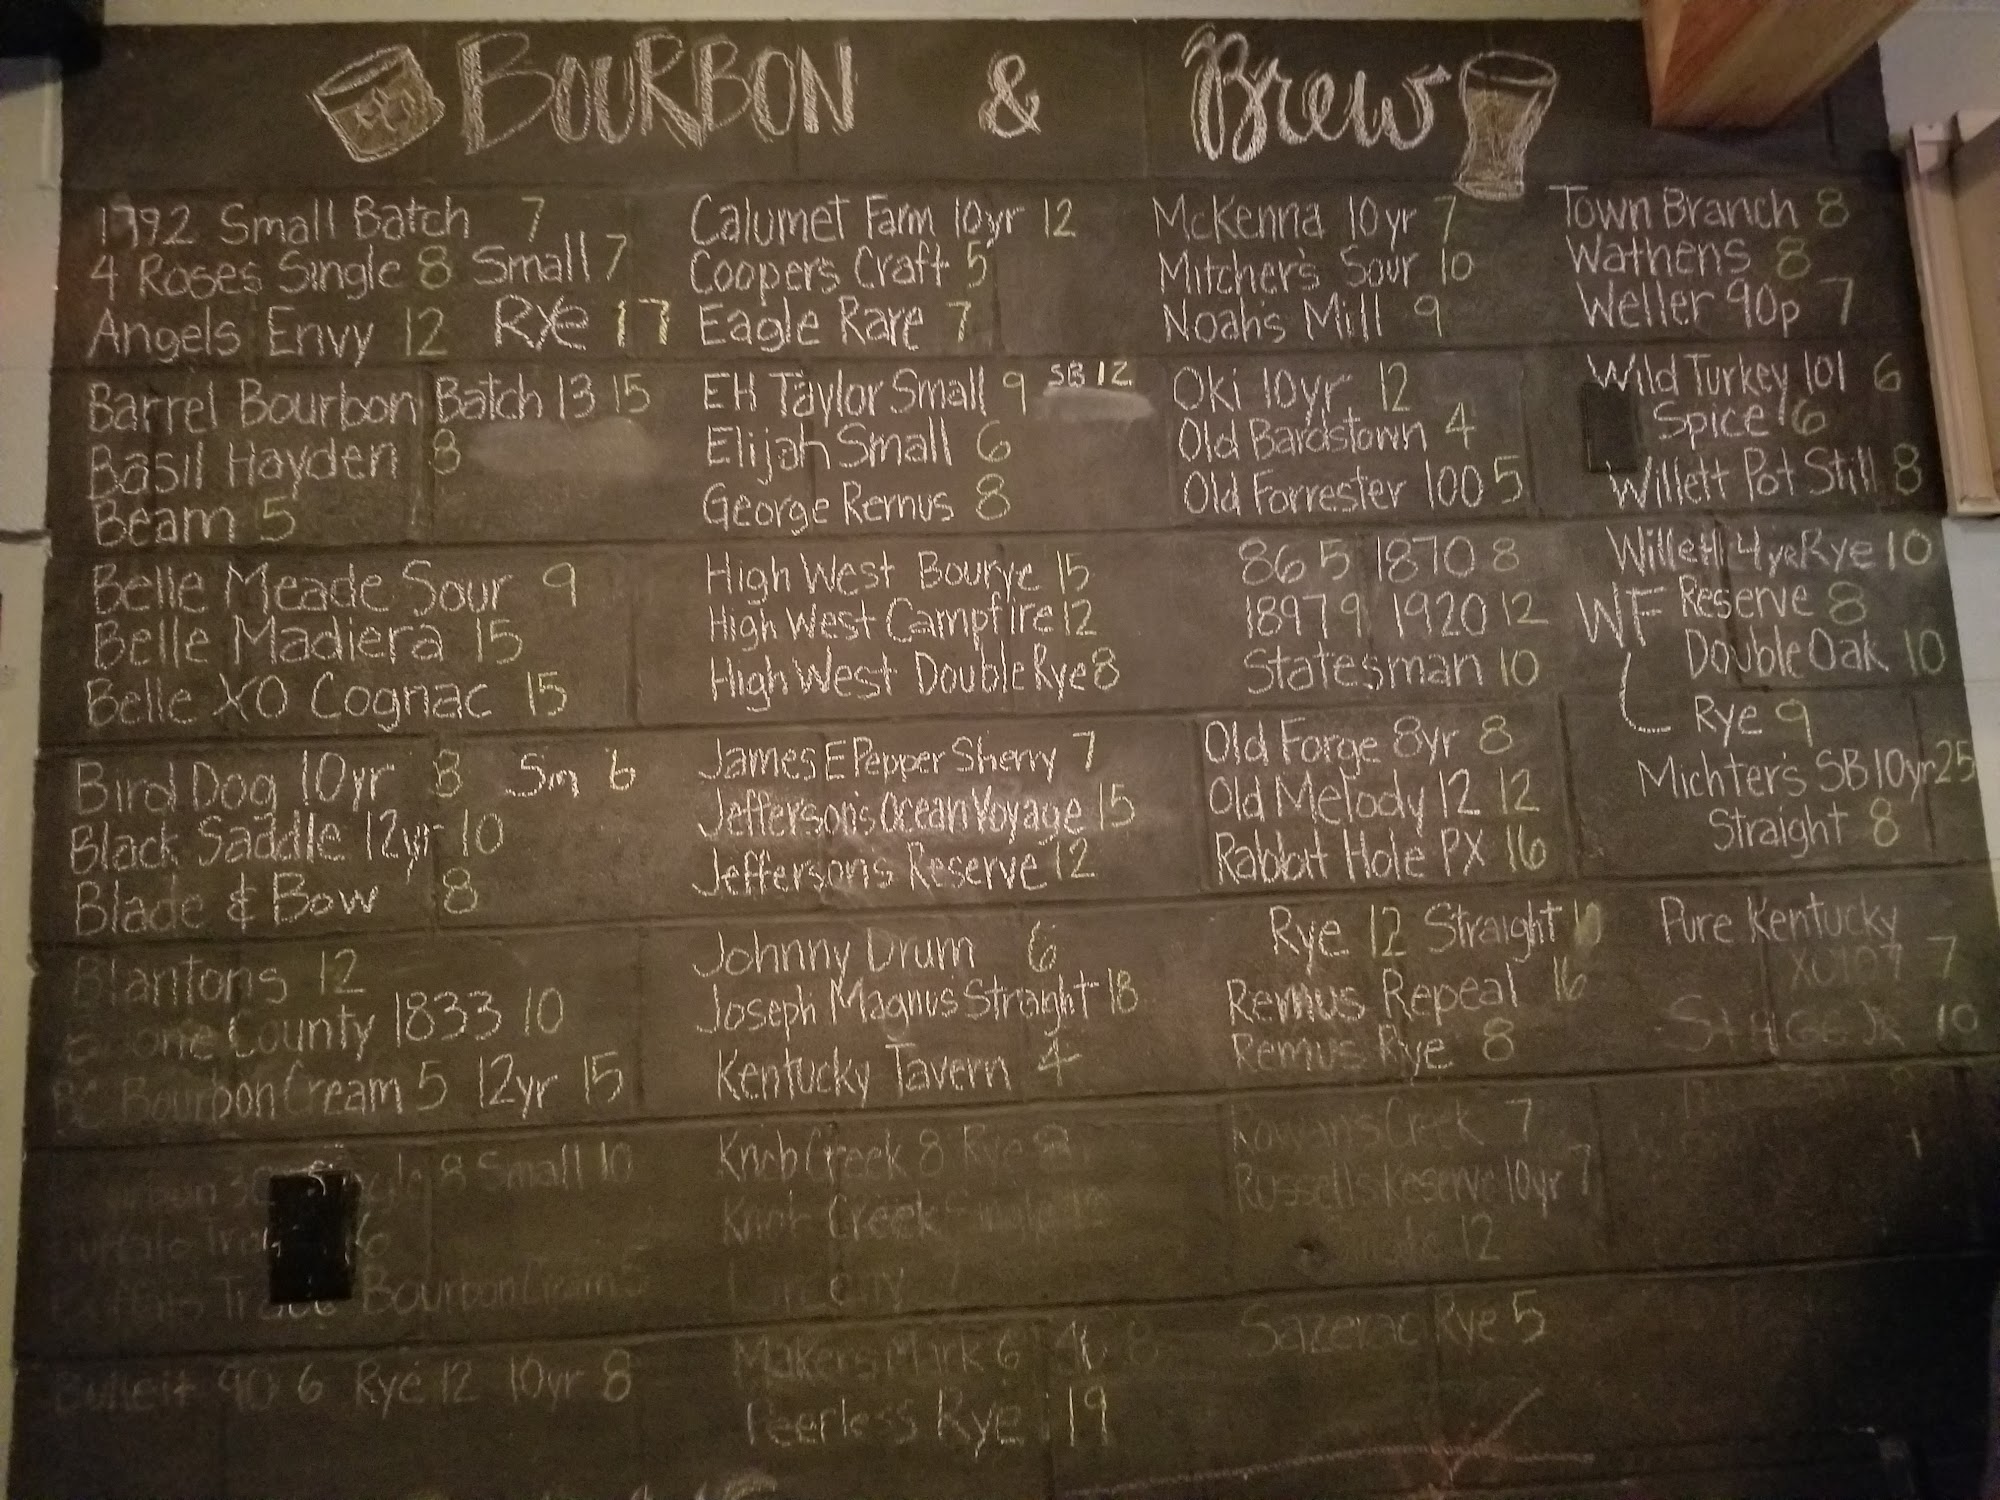 BOURBON & Brew
1792 Small Batch 7
4 Roses Single 8 Small 7
Angels Envy 12 Rye 17
Barrel Bourbon Batch 13 15
Basil Hayden 8
Beam 5
Belle Meade Sour 9
Belle Madiera 15
Belle XO Cognac 15
Bird Dog 10yr 8 Sm 6
Black Saddle 12yr 10
Blade & Bow 8
Blantons 12
Boone County 1833 10
BC Bourbon Cream 5 12yr 15
8 Small 10
Buffalo 6
Buffalo Trace Bourbon Cream 5
Bulleit 90 6 Rye 12 10yr 8
Calumet Farm 10yr 12
Coopers Craft 5
Eagle Rare 7
EH Taylor Small 9 SB 12
Elijah Small 6
George Remus 8
High West Bourye 15
High West Campfire 12
High West Double Rye 8
James E Pepper Sherry 7
Jefferson's Ocean Voyage 15
Jeffersons Reserve 12
Johnny Drum 6
Joseph Magnus Straight 18
Kentucky Tavern 4
Knob Creek 8 Rye 8
Knob Creek Single
Makers Mark 6 46 8
Peerless Rye 19
McKenna 10yr 7
Mitcher's Sour 10
Noahs Mill 9
Oki 10yr 12
Old Bardstown 4
Old Forrester 100 5
86 5 1870 8
1897 9 1920 12
Statesman 10
Old Forge 8yr 8
Old Melody 12 12
Rabbit Hole PX 16
Rye 12 Straight 10
Remus Repeal 16
Remus Rye 8
Rowan's Creek 7
Russells Reserve 10yr 7
12
Sazerac Rye 5
Town Branch 8
Wathens 8
Weller 90p 7
Wild Turkey 101 6
Spice 6
Willett Pot Still 8
Willett 4yr Rye 10
WF Reserve 8
Double Oak 10
Rye 9
Michter's SB 10yr 25
Straight 8
Pure Kentucky
XO 107 7
STAGG JR 10